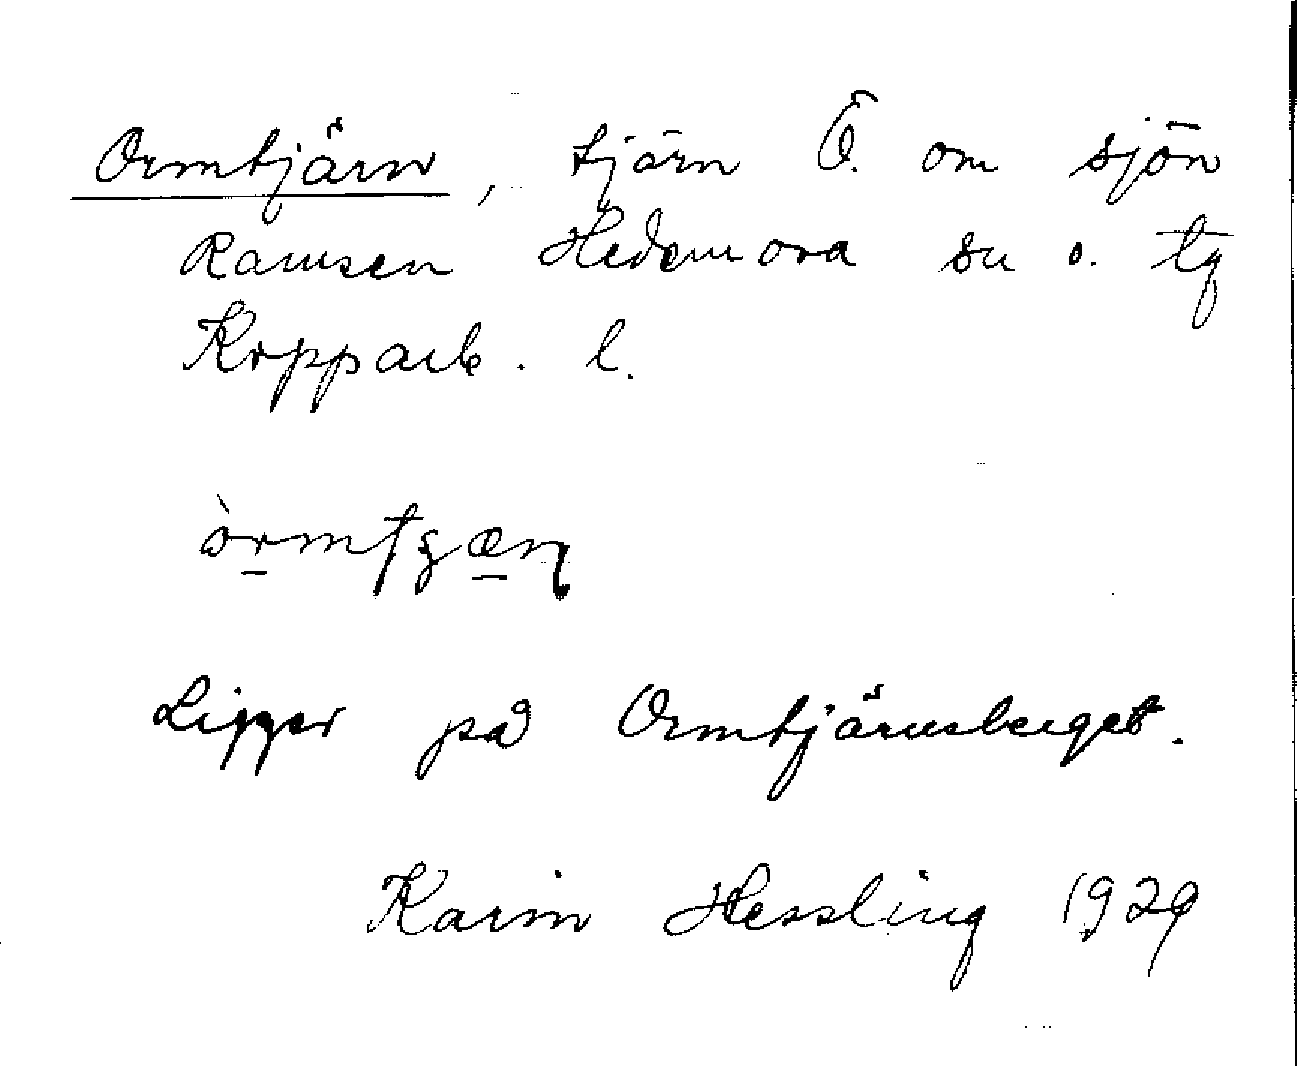 Ormtjärn, tjärn Ö. om sjön
Ramsen Hedemora sn o. tg
Kopparb. l.
òrmtʂæɳ
Ligger på Ormtjärnsberget.
Karin Hessling 1929